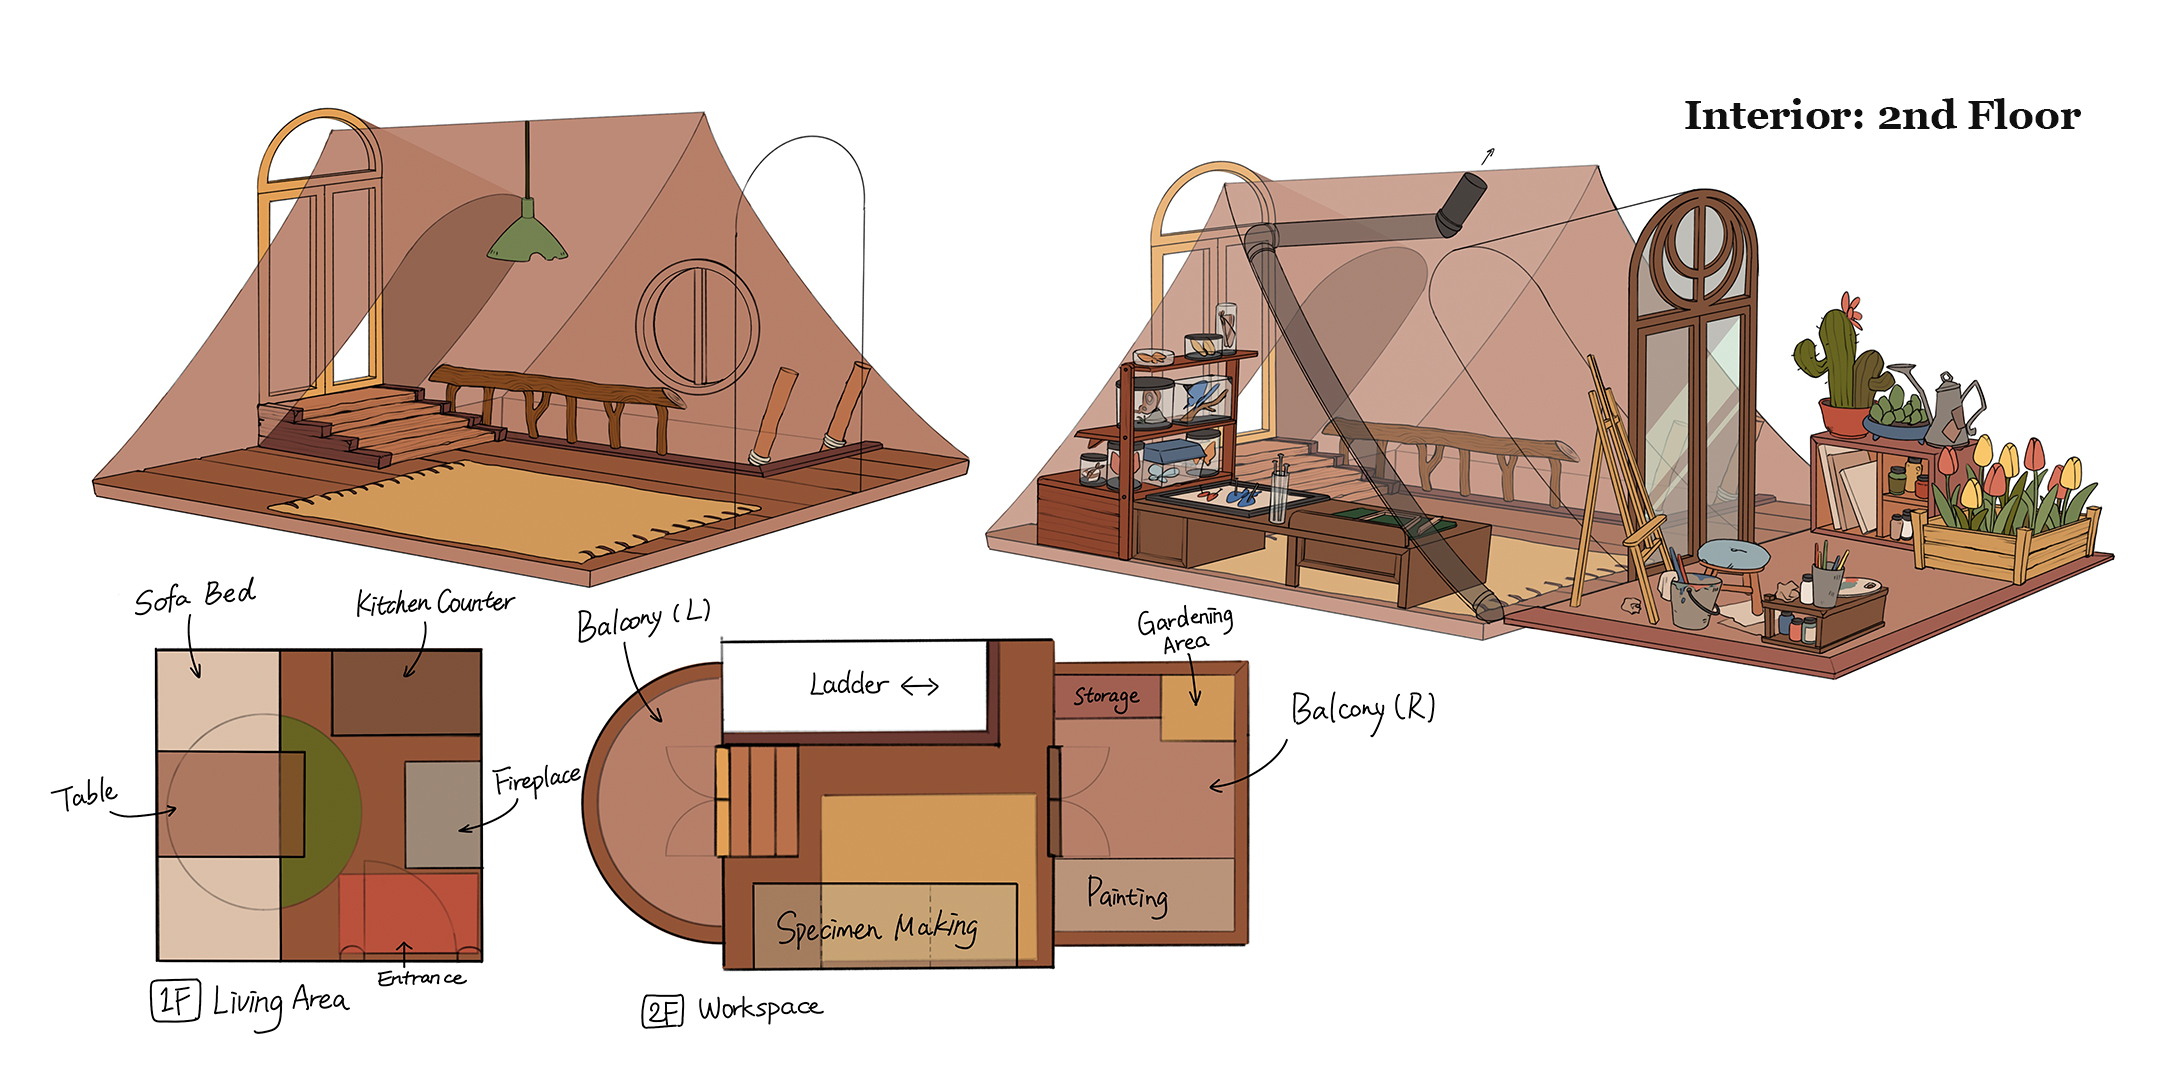 Interior: 2nd Floor
Sofa Bed
Kitchen Counter
Table
Fireplace
Entrance
1F Living Area
Balcony (L)
Ladder
Storage
Gardening
Area
Balcony (R)
Painting
Specimen Making
2F Workspace